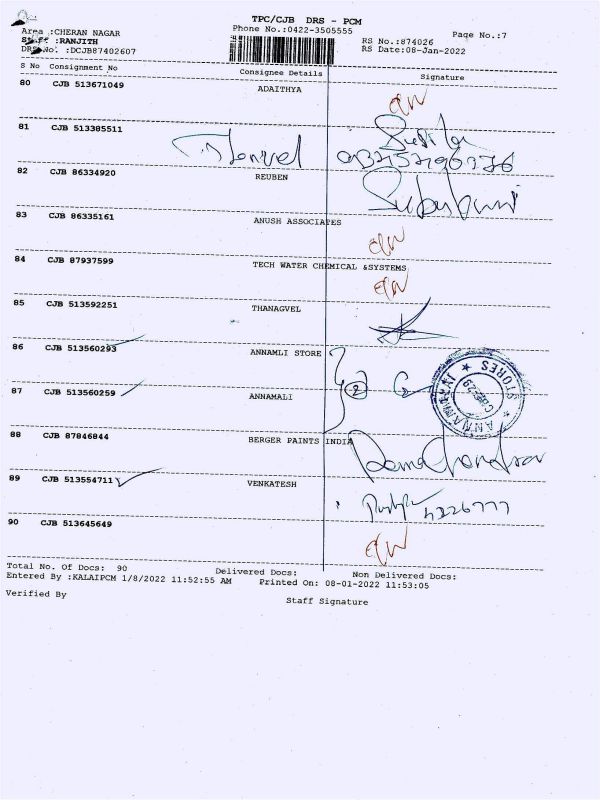 TPC/CJB DRS - PCM
Area :CHERAN NAGAR
Phone No.:0422-3505555
Page No.:7
Staff :RANJITH
RS No.:874026
DRS No. :DCJB87402607
RS Date:08-Jan-2022
S No Consignment No Consignee Details Signature
80 CJB 513671049 ADAITHYA
81 CJB 513385511
82 CJB 86334920 REUBEN
83 CJB 86335161 ANUSH ASSOCIATES
84 CJB 87937599 TECH WATER CHEMICAL &SYSTEMS
85 CJB 513592251 THANAGVEL
86 CJB 513560293 ANNAMLI STORE
2
87 CJB 513560259 ANNAMALI
STORES
88 CJB 87846844 BERGER PAINTS INDIA
RamaChandran
89 CJB 513554711 VENKATESH
90 CJB 513645649
Total No. Of Docs: 90 Delivered Docs: Non Delivered Docs:
Entered By :KALAIPCM 1/8/2022 11:52:55 AM Printed On: 08-01-2022 11:53:05
Verified By Staff Signature